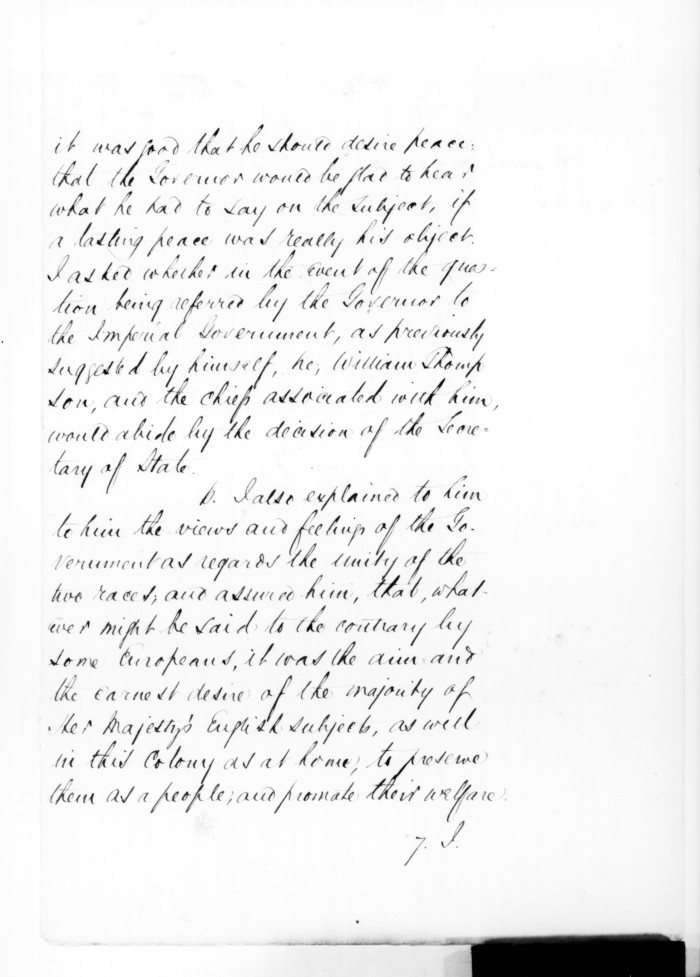 it was good that he should desire peace;
that the Governor would be glad to hear
what he had to say on the subject, if
a lasting peace was really his object.
I asked whether in the event of the ques-
tion being referred by the Governor to
the Imperial Government, as previously
suggested by himself, he, William Thomp
son, and the chiefs associated with him,
would abide by the decision of the Secre-
tary of State.
6. I also explained to him
to him the views and feelings of the Go-
vernment as regards the unity of the
two races; and assured him, that, what-
ever might be said to the contrary by
some Europeans, it was the aim and
the earnest desire of the majority of
Her Majesty's English subjects, as well
in this Colony as at home, to preserve
them as a people; and promote their welfare.
7. I.